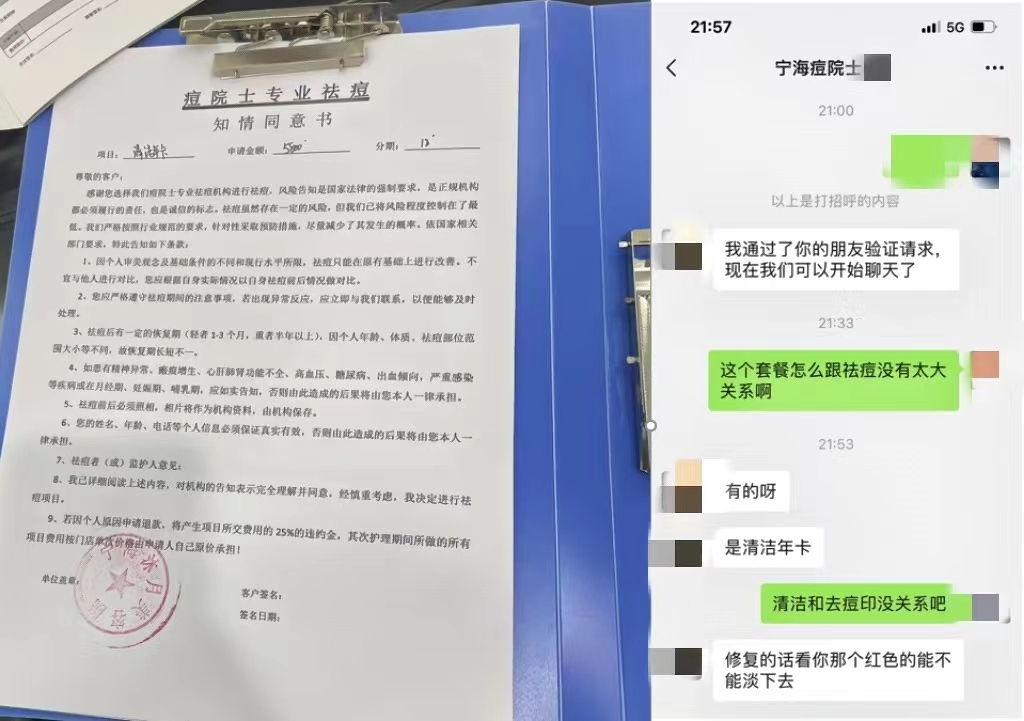 痘院士专业祛痘
知情同意书
项目: 清洁卡 申请金额: 5800 分期: 12
尊敬的客户:
感谢您选择我们痘院士专业祛痘机构进行祛痘,风险告知是国家法律的强制要求,是正规机构
都必须履行的责任,也是诚信的标志。祛痘虽然存在一定的风险,但我们已将风险程度控制在了最
低。我们严格按照行业规范的要求,针对性采取预防措施,尽量减少了其发生的概率。依国家相关
部门要求,特此告知如下条款:
1、因个人审美观念及基础条件的不同和现行水平所限,祛痘只能在原有基础上进行改善。不
宜与他人进行对比,您应根据自身实际情况以自身祛痘前后情况做对比。
2、您应严格遵守祛痘期间的注意事项,若出现异常反应,应立即与我们联系,以便能够及时
处理。
3、祛痘后有一定的恢复期(轻者1-3个月,重者半年以上),因个人年龄、体质、祛痘部位范
围大小等不同,故恢复期长短不一。
4、如患有精神异常、瘢痕增生、心肝肺肾功能不全、高血压、糖尿病、出血倾向,严重感染
等疾病或在月经期、妊娠期、哺乳期,应如实告知,否则由此造成的后果将由您本人一律承担。
5、祛痘前后必须照相,相片将作为机构资料,由机构保存。
6、您的姓名、年龄、电话等个人信息必须保证真实有效,否则由此造成的后果将由您本人一
律承担。
7、祛痘者(或)监护人意见:
8、我已详细阅读上述内容,对机构的告知表示完全理解并同意。经慎重考虑,我决定进行祛
痘项目。
9、若因个人原因申请退款,将产生项目所交费用的25%的违约金,其次护理期间所做的所有
项目费用按门店单次价格由申请人自己原价承担!
单位盖章:
客户签名:
签名日期:
21:57
5G
宁海痘院士
21:00
以上是打招呼的内容
我通过了你的朋友验证请求,
现在我们可以开始聊天了
21:33
这个套餐怎么跟祛痘没有太大
关系啊
21:53
有的呀
是清洁年卡
清洁和去痘印没关系吧
修复的话看你那个红色的能不
能淡下去